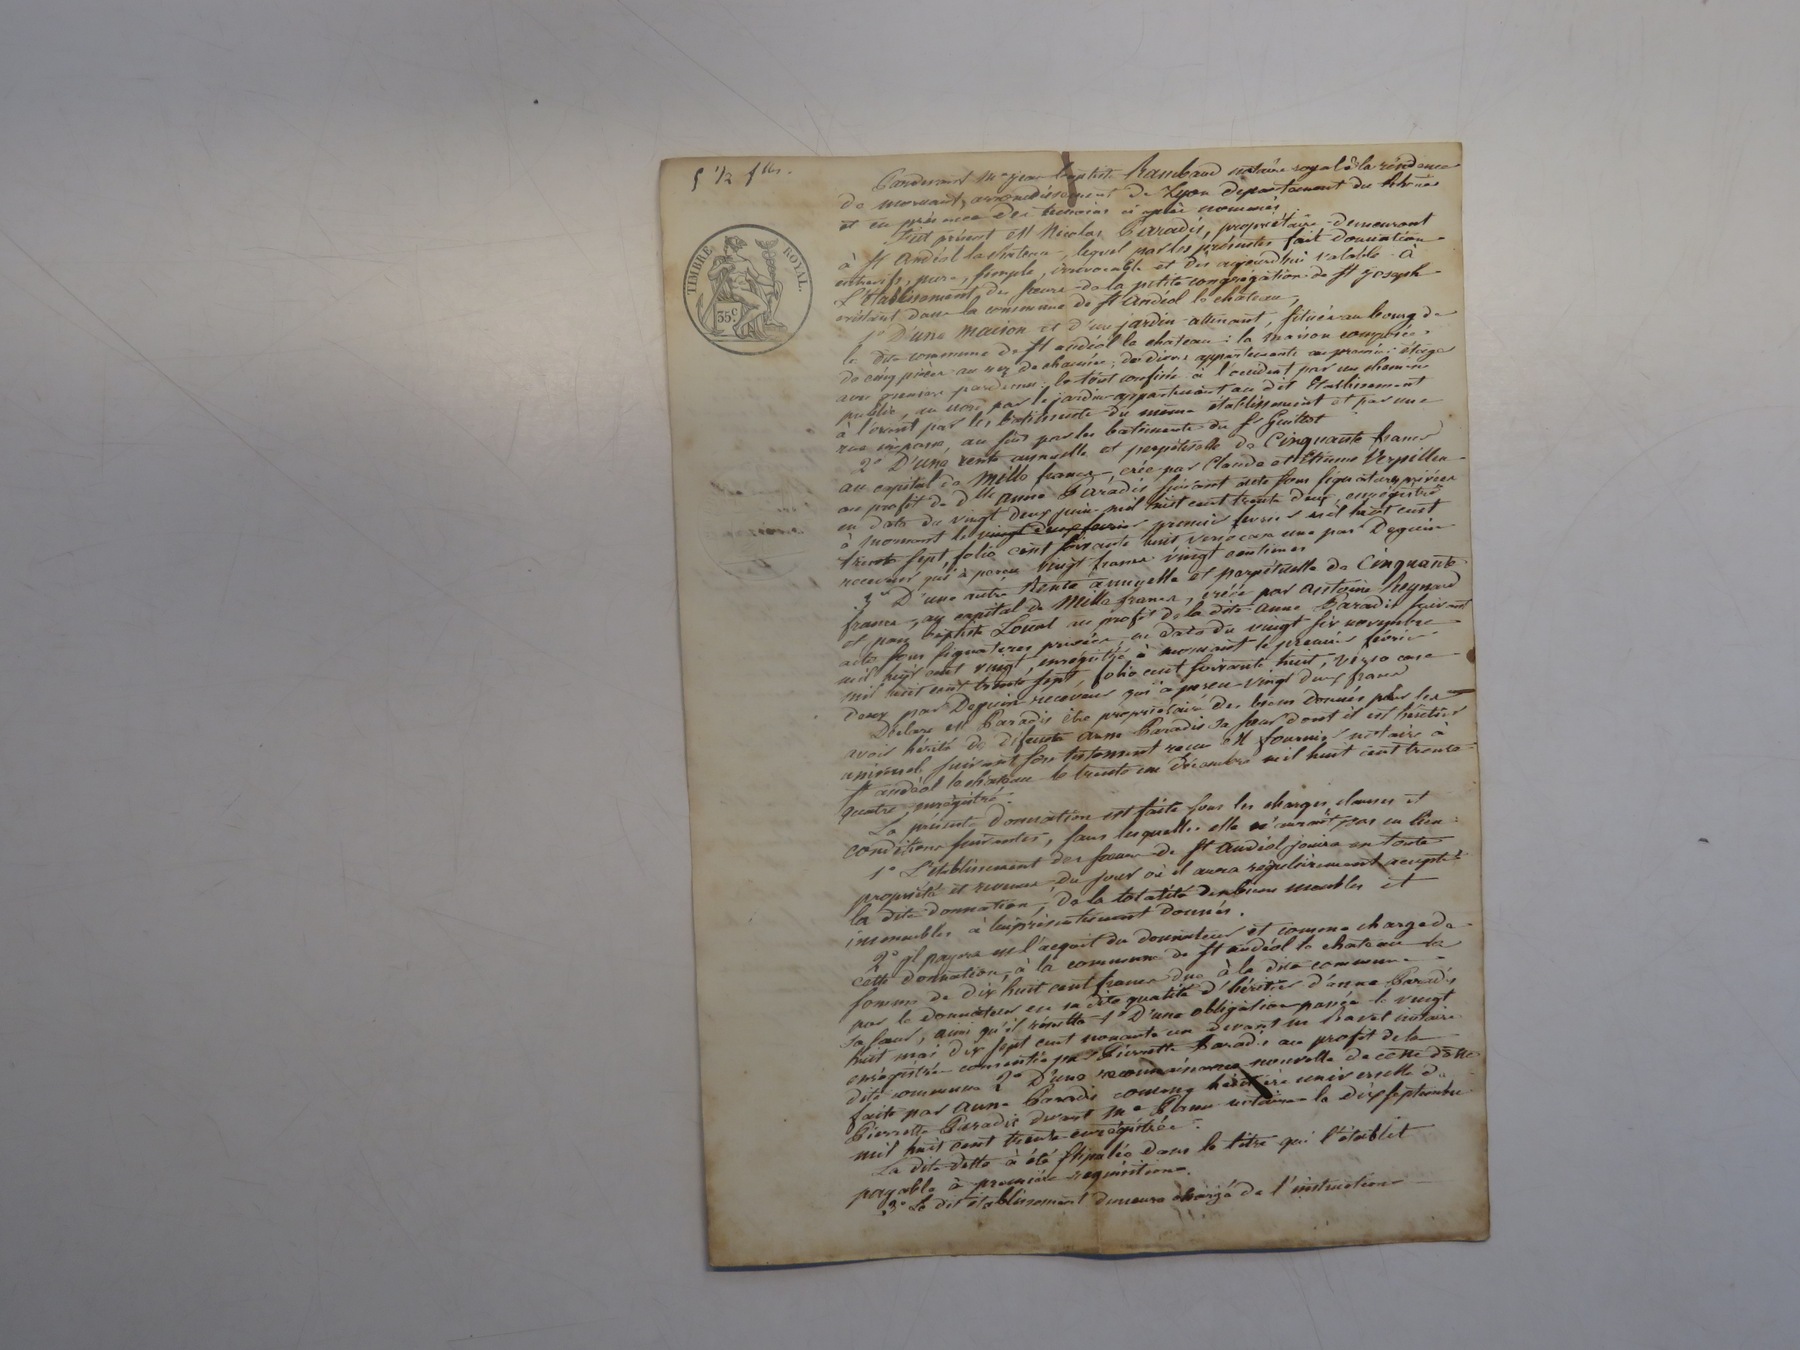 TIMBRE ROYAL.
35 c.
Pardevant Me jean baptiste Rambaud notaire royal à la résidence
de mornant, arrondissement de Lyon departement du Rhône
et en présence des temoins ci après nommés
Fut présent Mr Nicolas Paradis, propriétaire demeurant
à St Andéol le chateau, lequel par les présentes fait donnation
entrevifs, pure, simple, irrévocable et dès aujourd'hui valable à
L'établissement des sœurs de la petite congrégation de St Joseph
existant dans la commune de St Andéol le chateau,
1° D'une maison et d'un jardin attenant, située au bourg de
la dite commune de St andéol le chateau : la maison composée
de cinq pièces au rez de chaussée, de divers appartements au premier étage
avec greniers pardessus, le tout confiné à l'occident par un chemin
public, au nord par le jardin appartenant au dit Etablissement
à l'orient par les batiments du même établissement et par une
rue impasse, au sud par les batiments du Sr Guillot
2° D'une rente annuelle et perpétuelle de Cinquante francs
au capital de Mille francs, créée par Claude et Etienne Verpillieu
au profit de Dlle anne Paradis suivant acte sous signatures privées
en date du vingt deux juin mil huit cent trente deux, enregistré
à Mornant le vingt deux fevrier premier fevrier mil huit cent
trente sept, folio cent soixante huit verso case une par Dequin
receveur qui à perçu vingt francs vingt centimes
3° D'une autre Rente annuelle et perpétuelle de Cinquante
francs, au capital de Mille francs, créée par antoine Reynard
et par baptiste Louat au profit de la dite anne Paradis suivant
acte sous signatures privées, en date du vingt six novembre
mil huit cent vingt, enregistré à mornant le premier février
mil huit cent trente sept, folio cent soixante huit, verso case
deux par Dequin receveur qui à perçu vingt deux francs
Déclare Mr Paradis être propriétaire des biens donnés pour les
avoir hérité de défunte anne Paradis sa sœur dont il est héritier
universel suivant son testament reçu Me fournier notaire à
St andéol le chateau le trente un décembre mil huit cent trente
quatre, enregistré.
La présente Donnation est faite sous les charges, clauses et
conditions suivantes, sans lesquelles elle n'aurait pas eu lieu :
1° L'établissement des sœurs de St Andéol jouira en toute
propriété et revenus du jour où il aura régulièrement accepté
la dite donnation, de la totalité des biens meubles et
immeubles à lui présentement donnés.
2° Il payera en l'acquit du donnateur et comme charge de
cette donnation, à la commune de St andéol le chateau la
somme de dix huit cent francs due à la dite commune
par le donnateur en sa dite qualité d'héritier d'anne Paradis
sa sœur, ainsi qu'il résulte 1° D'une obligation passée le vingt
huit mai dix sept cent nonante un devant Me Ravel notaire
enregistrée consentie par Pierrette Paradis au profit de la
dite commune 2° D'une reconnaissance nouvelle de cette dette
faite par anne Paradis comme héritière universelle de
Pierrette Paradis devant Me notaire le dix septembre
mil huit cent trente enregistrée.
La dite dette à été stipulée dans le titre qui l'établit
payable à première réquisition.
3° Le dit établissement demeure chargé de l'instruction